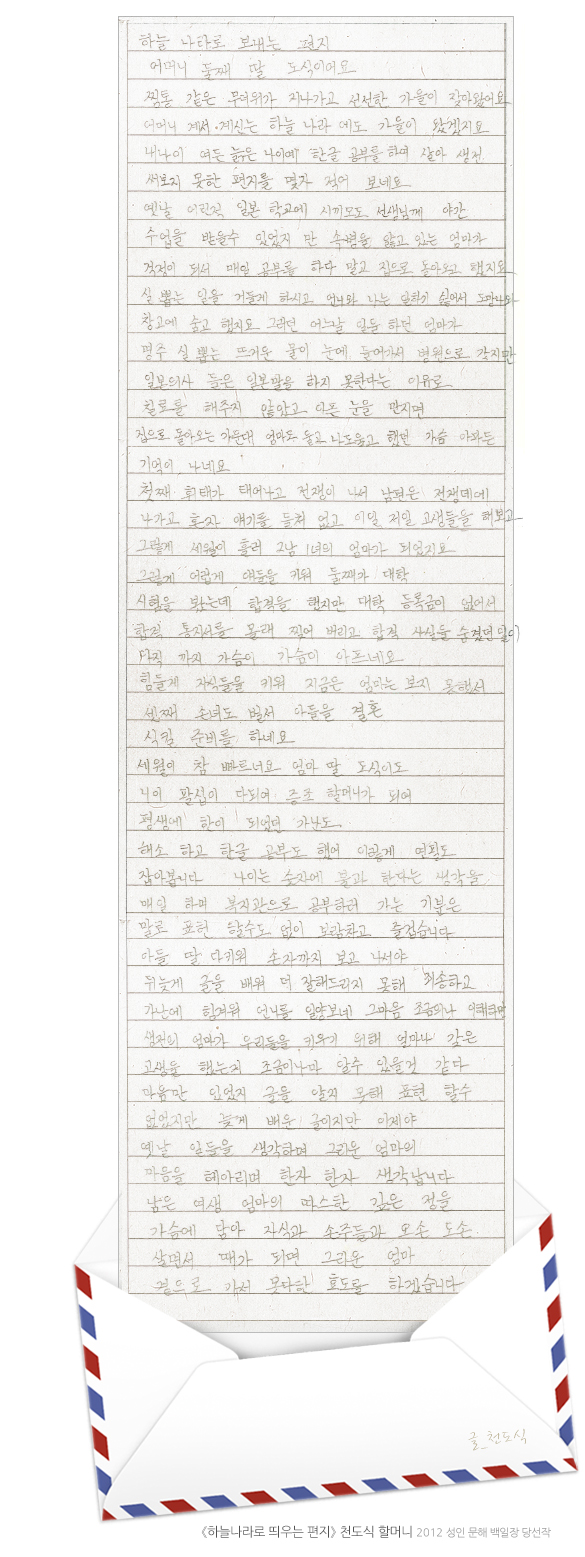 하늘 나라로 보내는 편지
어머니 둘째 딸 도식이에요
찜통 같은 무더위가 지나가고 선선한 가을이 찾아왔어요
어머니 계신 하늘 나라 에도 가을이 왔겠지요
내나이 여든 늙은 나이에 한글 공부를 하며 살아 생전
써보지 못한 편지를 몇자 적어 보네요
옛날 어린직 일본 학교에 시끼모도 선생님께 야간
수업을 받을수 있었지 만 속병을 앓고 있는 엄마가
걱정이 되서 매일 공부를 하다 말고 집으로 돌아오고 했지요
실 뽑는 일을 거들게 하시고 언니와 나는 일하기 싫어서 도망나와
창고에 숨고 했지요 그러던 어느날 일을 하던 엄마가
명주 실 뽑는 뜨거운 물이 눈에 들어가서 병원으로 갔지만
일본의사 들은 일본말을 하지 못한다는 이유로
치료를 해주지 않았고 아픈 눈을 만지면
집으로 돌아오는 가운대 엄마도 울고 나도울고 했던 가슴 아파든
기억이 나네요
첫째 휘태가 태어나고 전쟁이 나서 남편은 전쟁데에
나가고 혼자 얘기를 들처 업고 이일 저일 고생들을 해보고
그렇게 세월이 흘러 2남 1녀의 엄마가 되었지요
그렇게 어렵게 애들을 키워 둘째가 대학
시험을 봤는데 합격을 했지만 대학 등록금이 없어서
합격 통지서를 몰래 찢어 버리고 합격 사실을 숨겼던 일이
아직 까지 가슴이 가슴이 아프네요
힘들게 자식들을 키워 지금은 엄마는 보지 못해서
셋째 손녀도 벌서 아들을 결혼
식킬 준비를 하네요
세월이 참 빠트너요 엄마 딸 도식이도
나이 팔십이 다되여 증조 할머니가 되여
평생에 한이 되었던 가난도
해소 하고 한글 공부도 했어 이렇게 연필도
잡아봅니다 나이는 숫자에 불과 한다는 생각을
매일 하며 복지관으로 공부하러 가는 기분은
말로 표현 할수도 없이 보람차고 즐겁습니다
아들 딸 다키워 손자까지 보고 나서야
뒤늦게 글을 배워 더 잘해드리지 못해 죄송하고
가난에 힘겨워 언니를 일찍보네 그마음 조금이나 이해하만
생전의 엄마가 우리들을 키우기 위해 얼마나 깊은
고생을 했는지 조금이나마 알수 있을것 같다
마음만 있었지 글을 알지 못해 표현 할수
없었지만 늦게 배운 글이지만 이제야
옛날 일들을 생각하며 그리운 엄마의
마음을 헤아리며 한자 한자 생각납니다
남은 여생 엄마의 따스한 깊은 정을
가슴에 담아 자식과 손주들과 오손 도손
살면서 때가 되면 그리운 엄마
곁으로 가서 못다한 효도를 하겠습니다
글_천도식
《하늘나라로 띄우는 편지》 천도식 할머니 2012 성인 문해 백일장 당선작